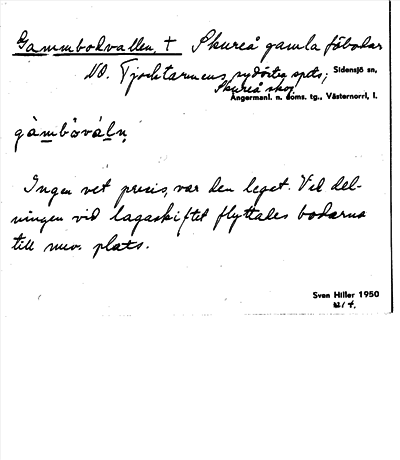 Gammbodvallen, † Skureå gamla fäbodar
NO. Tjocktarmens sydöstra spets; Sidensjö sn,
Skureå skog
Ångermanl. n. doms. tg., Västernorrl, l.
gàmbòváln
Ingen vet precis, var den leget. Vid del-
ningen vid lagaskiftet flyttades bodarna
till nuv. plats.
Sven Hiller 1950